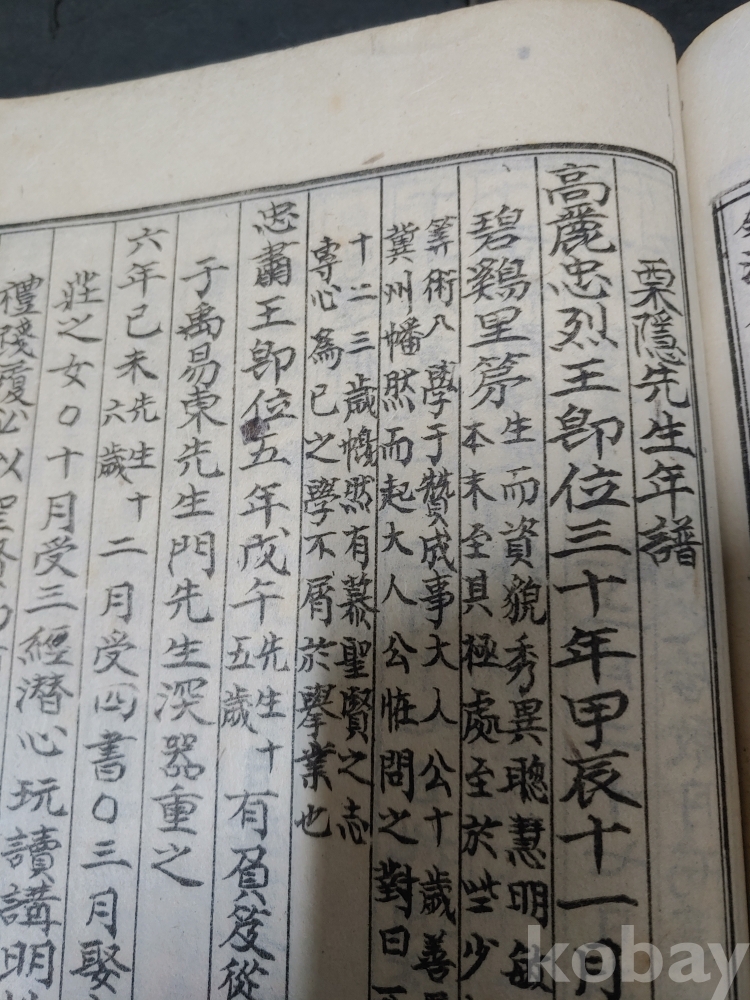 栗隱先生年譜
高麗忠烈王卽位三十年甲辰十一月
碧鷄里第
生而資貌秀異聰慧明敏
本末至其極處至於些少
筭術八學于贊成事大人公十歲善
冀州幡然而起大人公恠問之對曰
十二三歲幡然有慕聖賢之志
專心爲已之學不屑於擧業也
忠肅王卽位五年戊午先生十五歲有負笈從
于禹易東先生門先生深器重之
六年已未先生十六歲二月受四書〇三月娶
莊之女〇十月受三經潛心玩讀講明
禮 以聖賢
kobay